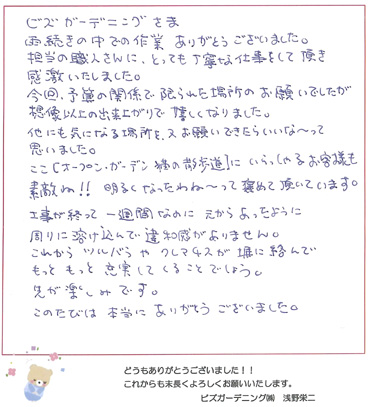 ビズガーデニングさま
雨続きの中での作業 ありがとうございました。
担当の職人さんに、とっても丁寧な仕事をして頂き
感激いたしました。
今回、予算の関係で限られた場所のお願いでしたが
想像以上の出来上がりで嬉しくなりました。
他にも気になる場所を、又お願いできたらいいな〜って
思いました。
ここ［オープン・ガーデン 猫の散歩道］にいらっしゃるお客様も
素敵ね!! 明るくなったわね〜って褒めて頂いています。
工事が終って 一週間なのに 元からあったように
周りに溶け込んで 違和感がありません。
これから ツルバラや クレマチスが 塀に絡んで
もっと もっと 充実してくることでしょう。
先が楽しみです。
このたびは 本当に ありがとうございました。
どうもありがとうございました！！
これからも末長くよろしくお願いいたします。
ビズガーデニング㈱ 浅野栄二